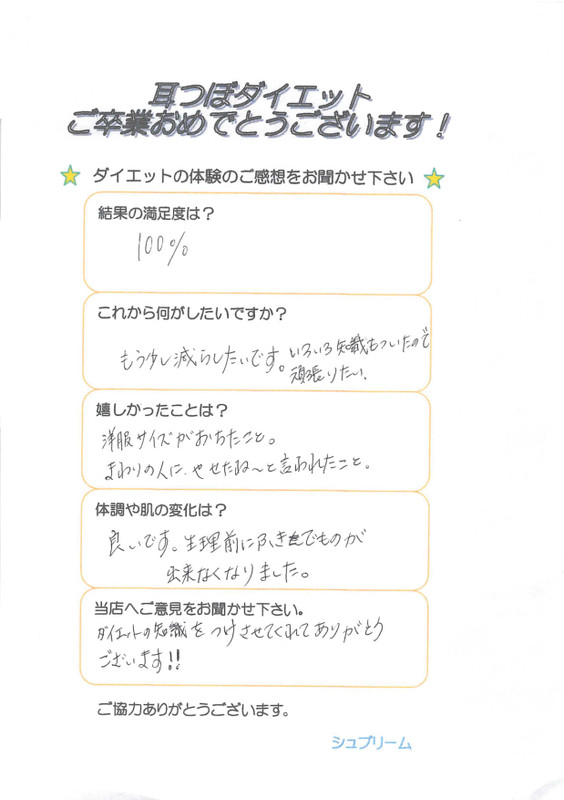 耳つぼダイエット
ご卒業おめでとうございます！
ダイエットの体験のご感想をお聞かせ下さい
結果の満足度は？
100%
これから何がしたいですか？
もう少し減らしたいです。いろいろ知識もついたので
頑張りたい。
嬉しかったことは？
洋服サイズがおちたこと。
まわりの人に、やせたね～と言われたこと。
体調や肌の変化は？
良いです。生理前にふきでものが
出来なくなりました。
当店へご意見をお聞かせ下さい。
ダイエットの知識をつけさせてくれてありがとう
ございます!!
ご協力ありがとうございます。
シュプリーム